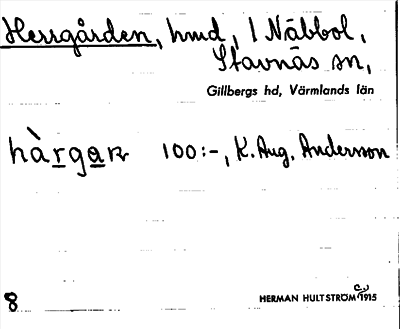 Herrgården, hmd, 1 Näbbol,
Stavnäs sn,
Gillbergs hd, Värmlands län
hàrgaʀ 100:-, K. Aug. Andersson
8
HERMAN HULTSTRÖM 1915